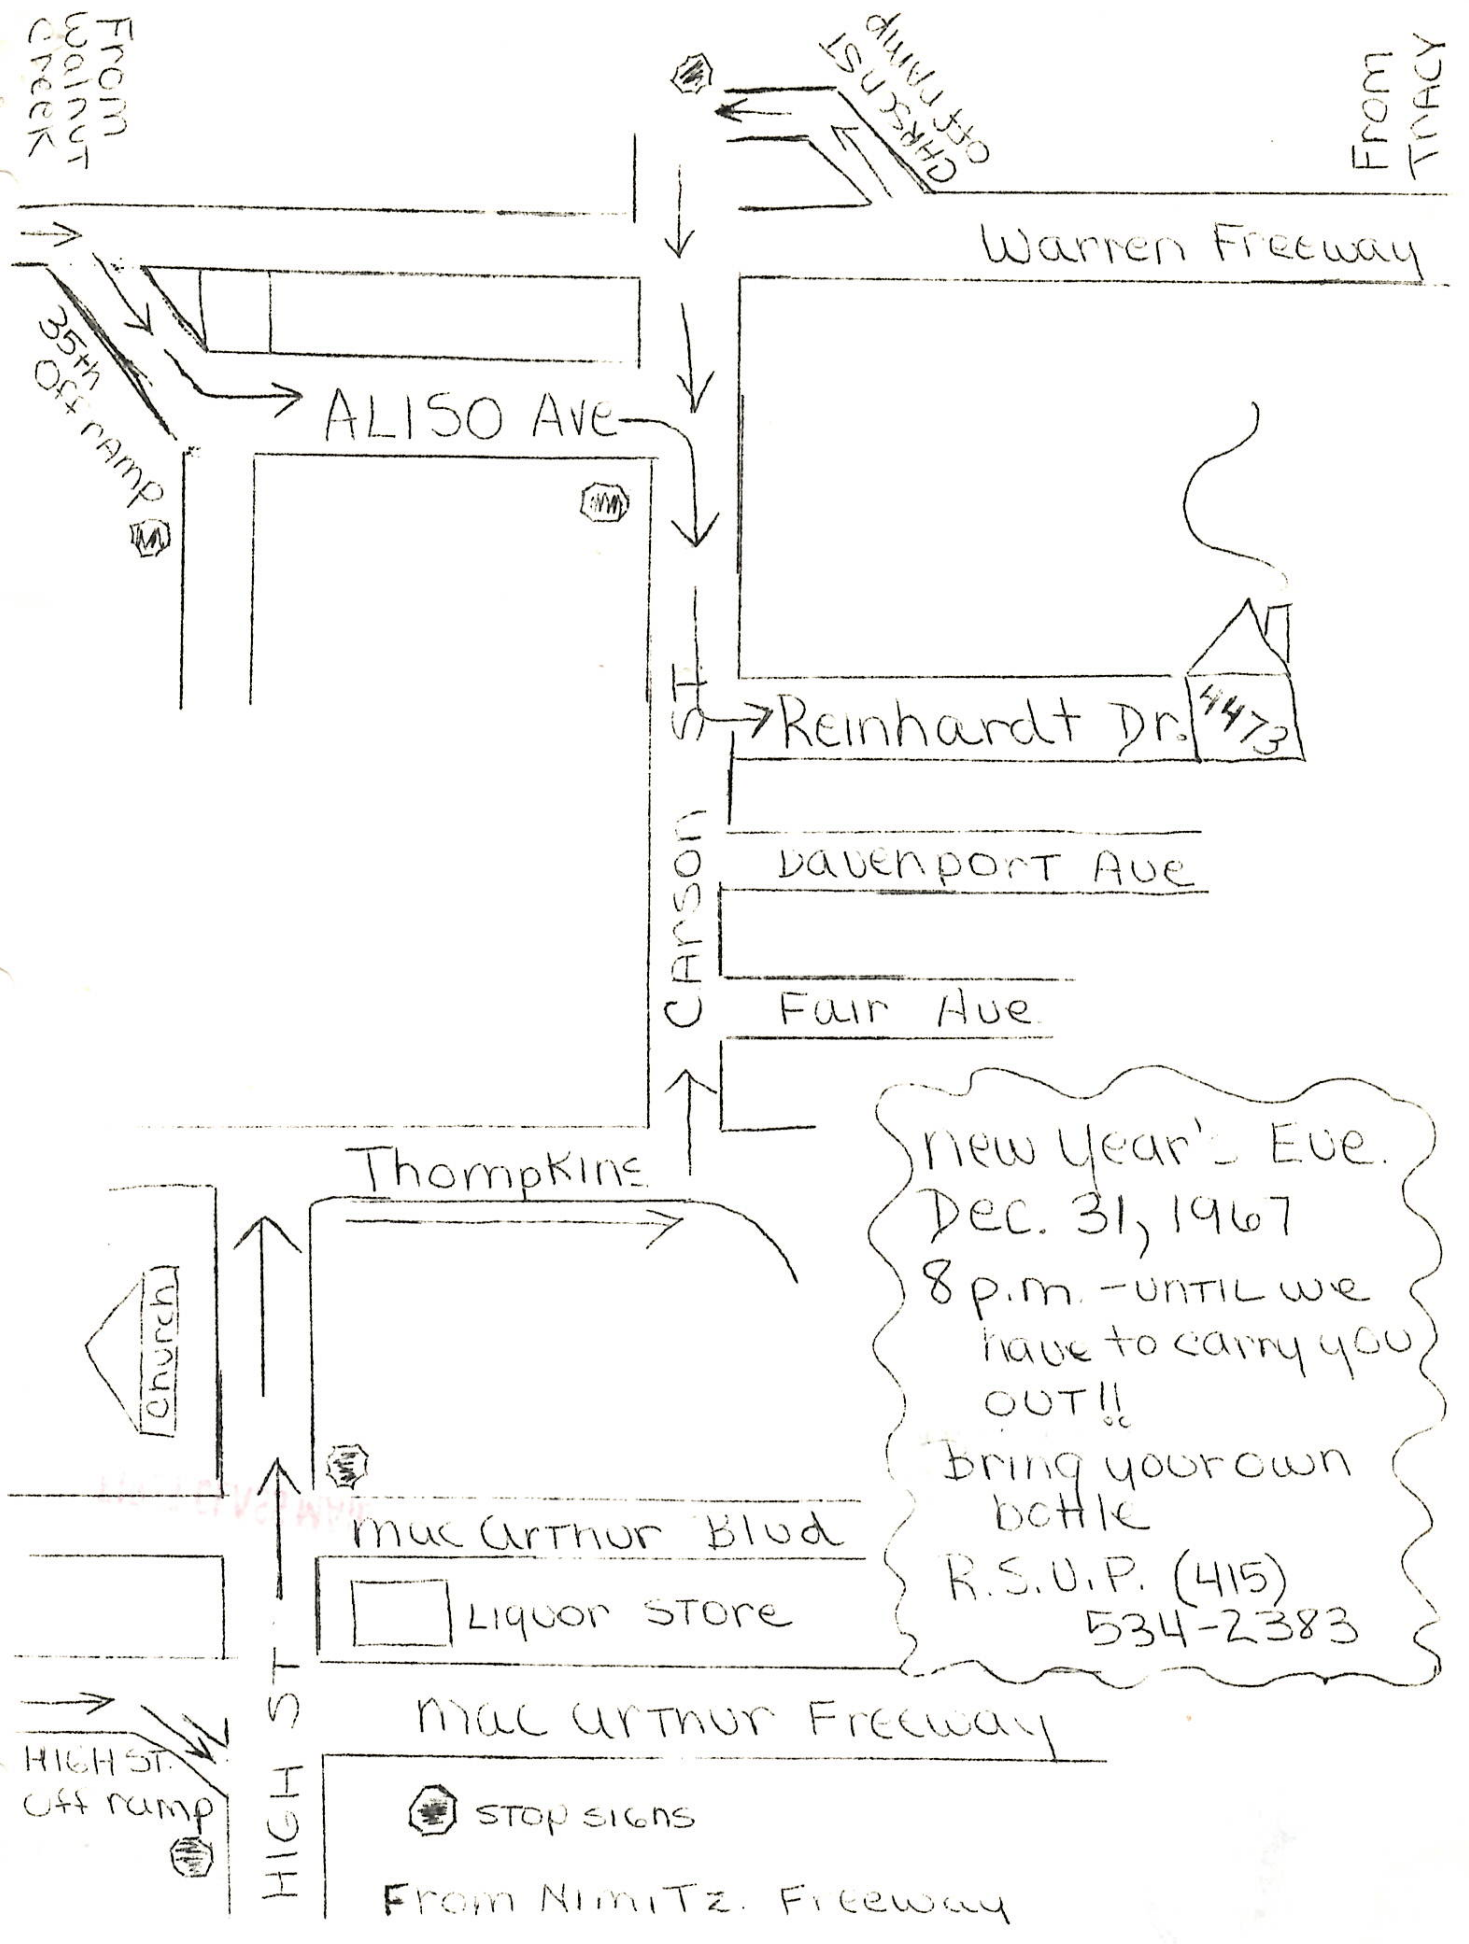 From
Walnut
Creek
CARSON ST
Off rAmp
From
TrACY
Warren Freeway
35th
Off rAmp
ALISO Ave
Reinhardt Dr.
4473
CArson ST
Davenport Ave
Fair Ave.
Thompkins
Church
new year's Eve.
Dec. 31, 1967
8 p.m. - UnTIL we
have to carry you
OUT!!
Bring your own
bottle
R.S.V.P. (415)
534-2383
mac ArThur Blvd
Liquor STore
HIGH ST
mac ArThur Freeway
HIGH ST.
Off ramp
STop siGns
From NimiTz. Freeway